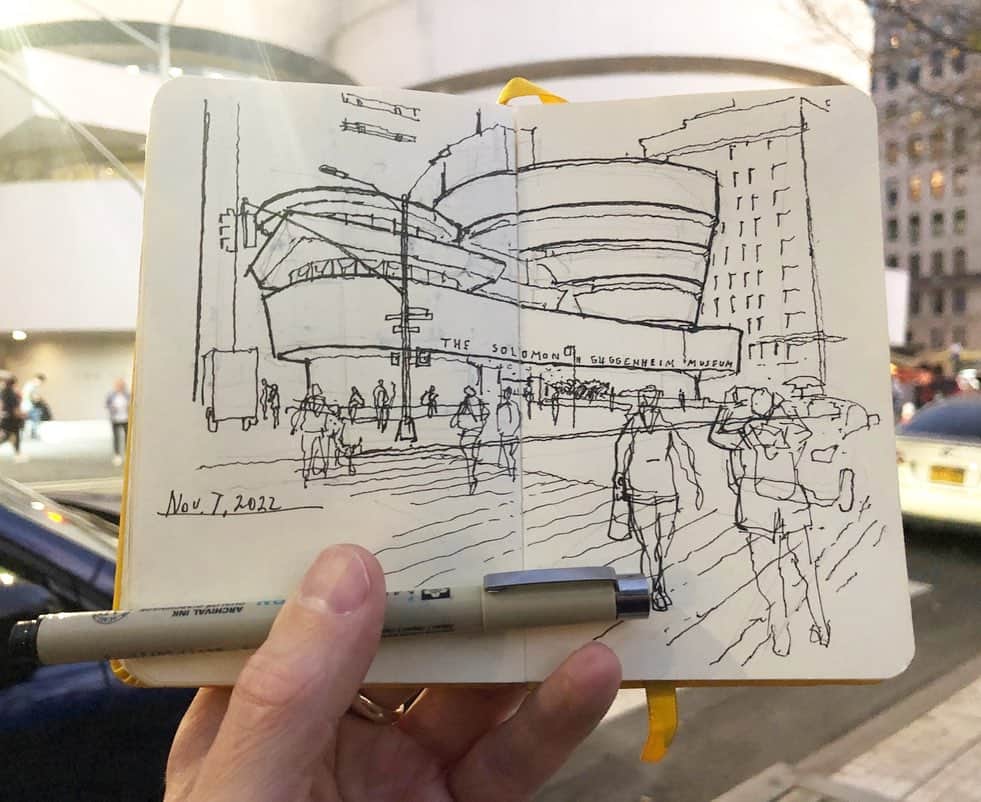 THE SOLOMON R GUGGENHEIM MUSEUM
Nov. 7, 2022
ARCHIVAL INK